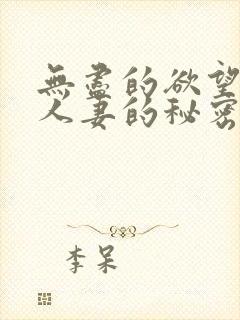 無盡的欲望
人妻的秘密
李呆